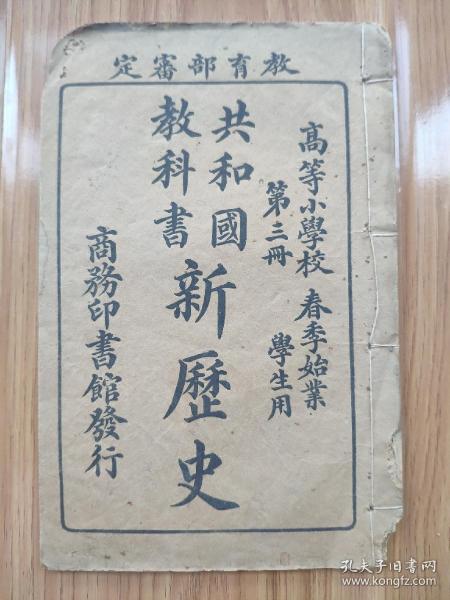 教育部審定
高等小學校 春季始業
第三冊 學生用
共和國
教科書
新歷史
商務印書館發行
孔夫子旧书网
www.kongfz.com